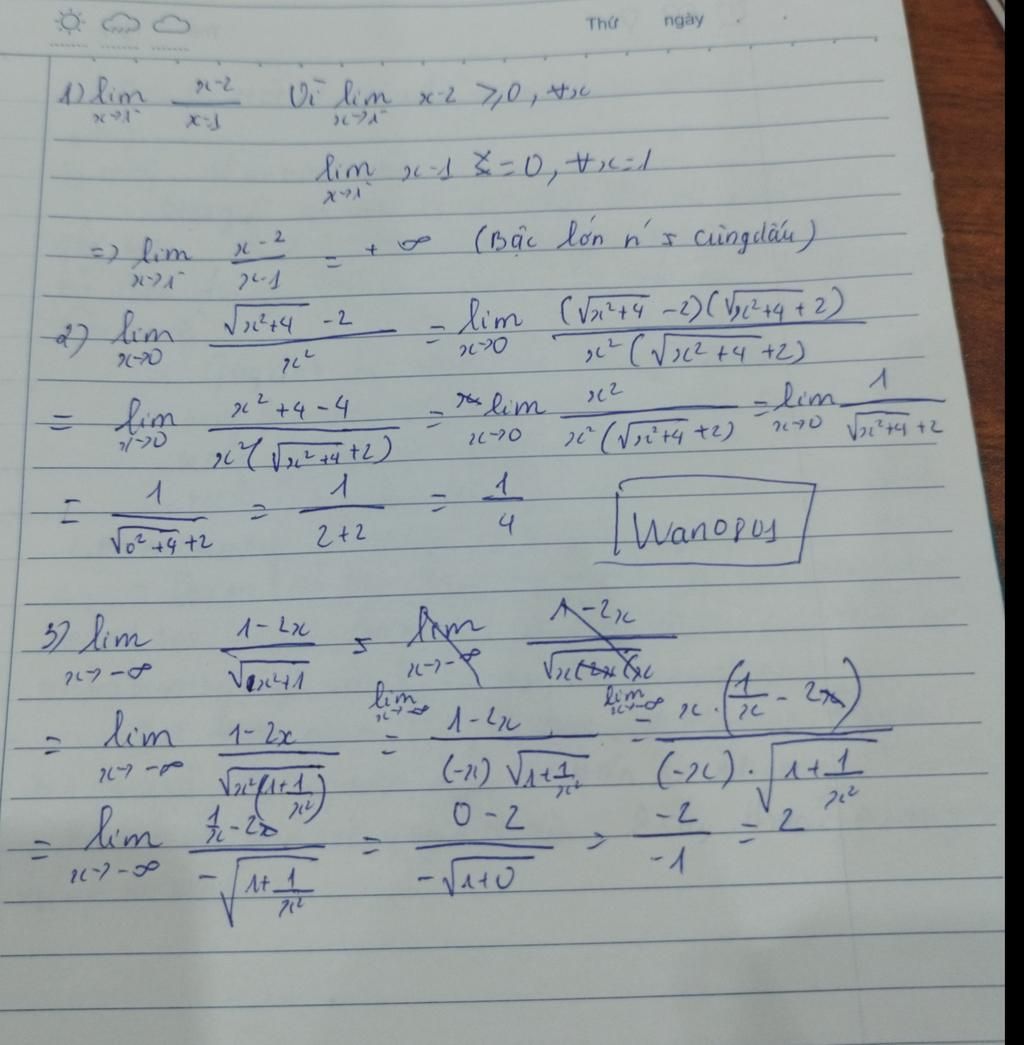 Thứ ngày
1) lim x→1⁻ (x-2)/(x-1) Vì lim x→1⁻ x-2 ≥ 0, ∀x
lim x→1⁻ x-1 = 0, ∀x=1
=> lim x→1⁻ (x-2)/(x-1) = +∞ (Bậc lớn n' s cùng dấu)
2) lim x→0 (√(x²+4) -2)/x² = lim x→0 ((√(x²+4) -2)(√(x²+4)+2))/(x²(√(x²+4)+2))
= lim x→0 (x²+4-4)/(x²(√(x²+4)+2)) = lim x→0 x²/(x²(√(x²+4)+2)) = lim x→0 1/(√(x²+4)+2)
= 1/(√(0²+4)+2) = 1/(2+2) = 1/4 Wanopus
3) lim x→-∞ (1-2x)/√(x²+1) = lim x→-∞ (1-2x)/
= lim x→-∞ (1-2x)/√(x²(1+1/x²)) = lim x→-∞ (1-2x)/((-x)√(1+1/x²)) = lim x→-∞ (x·(1/x - 2x))/((-x)·√(1+1/x²))
= lim x→-∞ (1/x-2x)/(-√(1+1/x²)) = (0-2)/(-√(1+0)) = (-2)/(-1) = 2